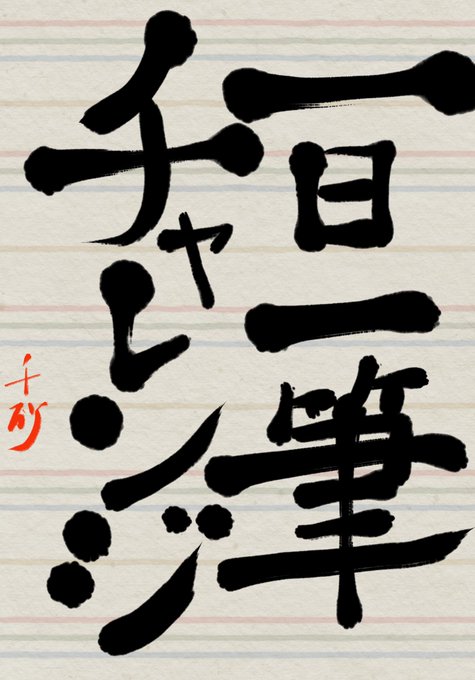 一日一筆
チャレンジ
千砂